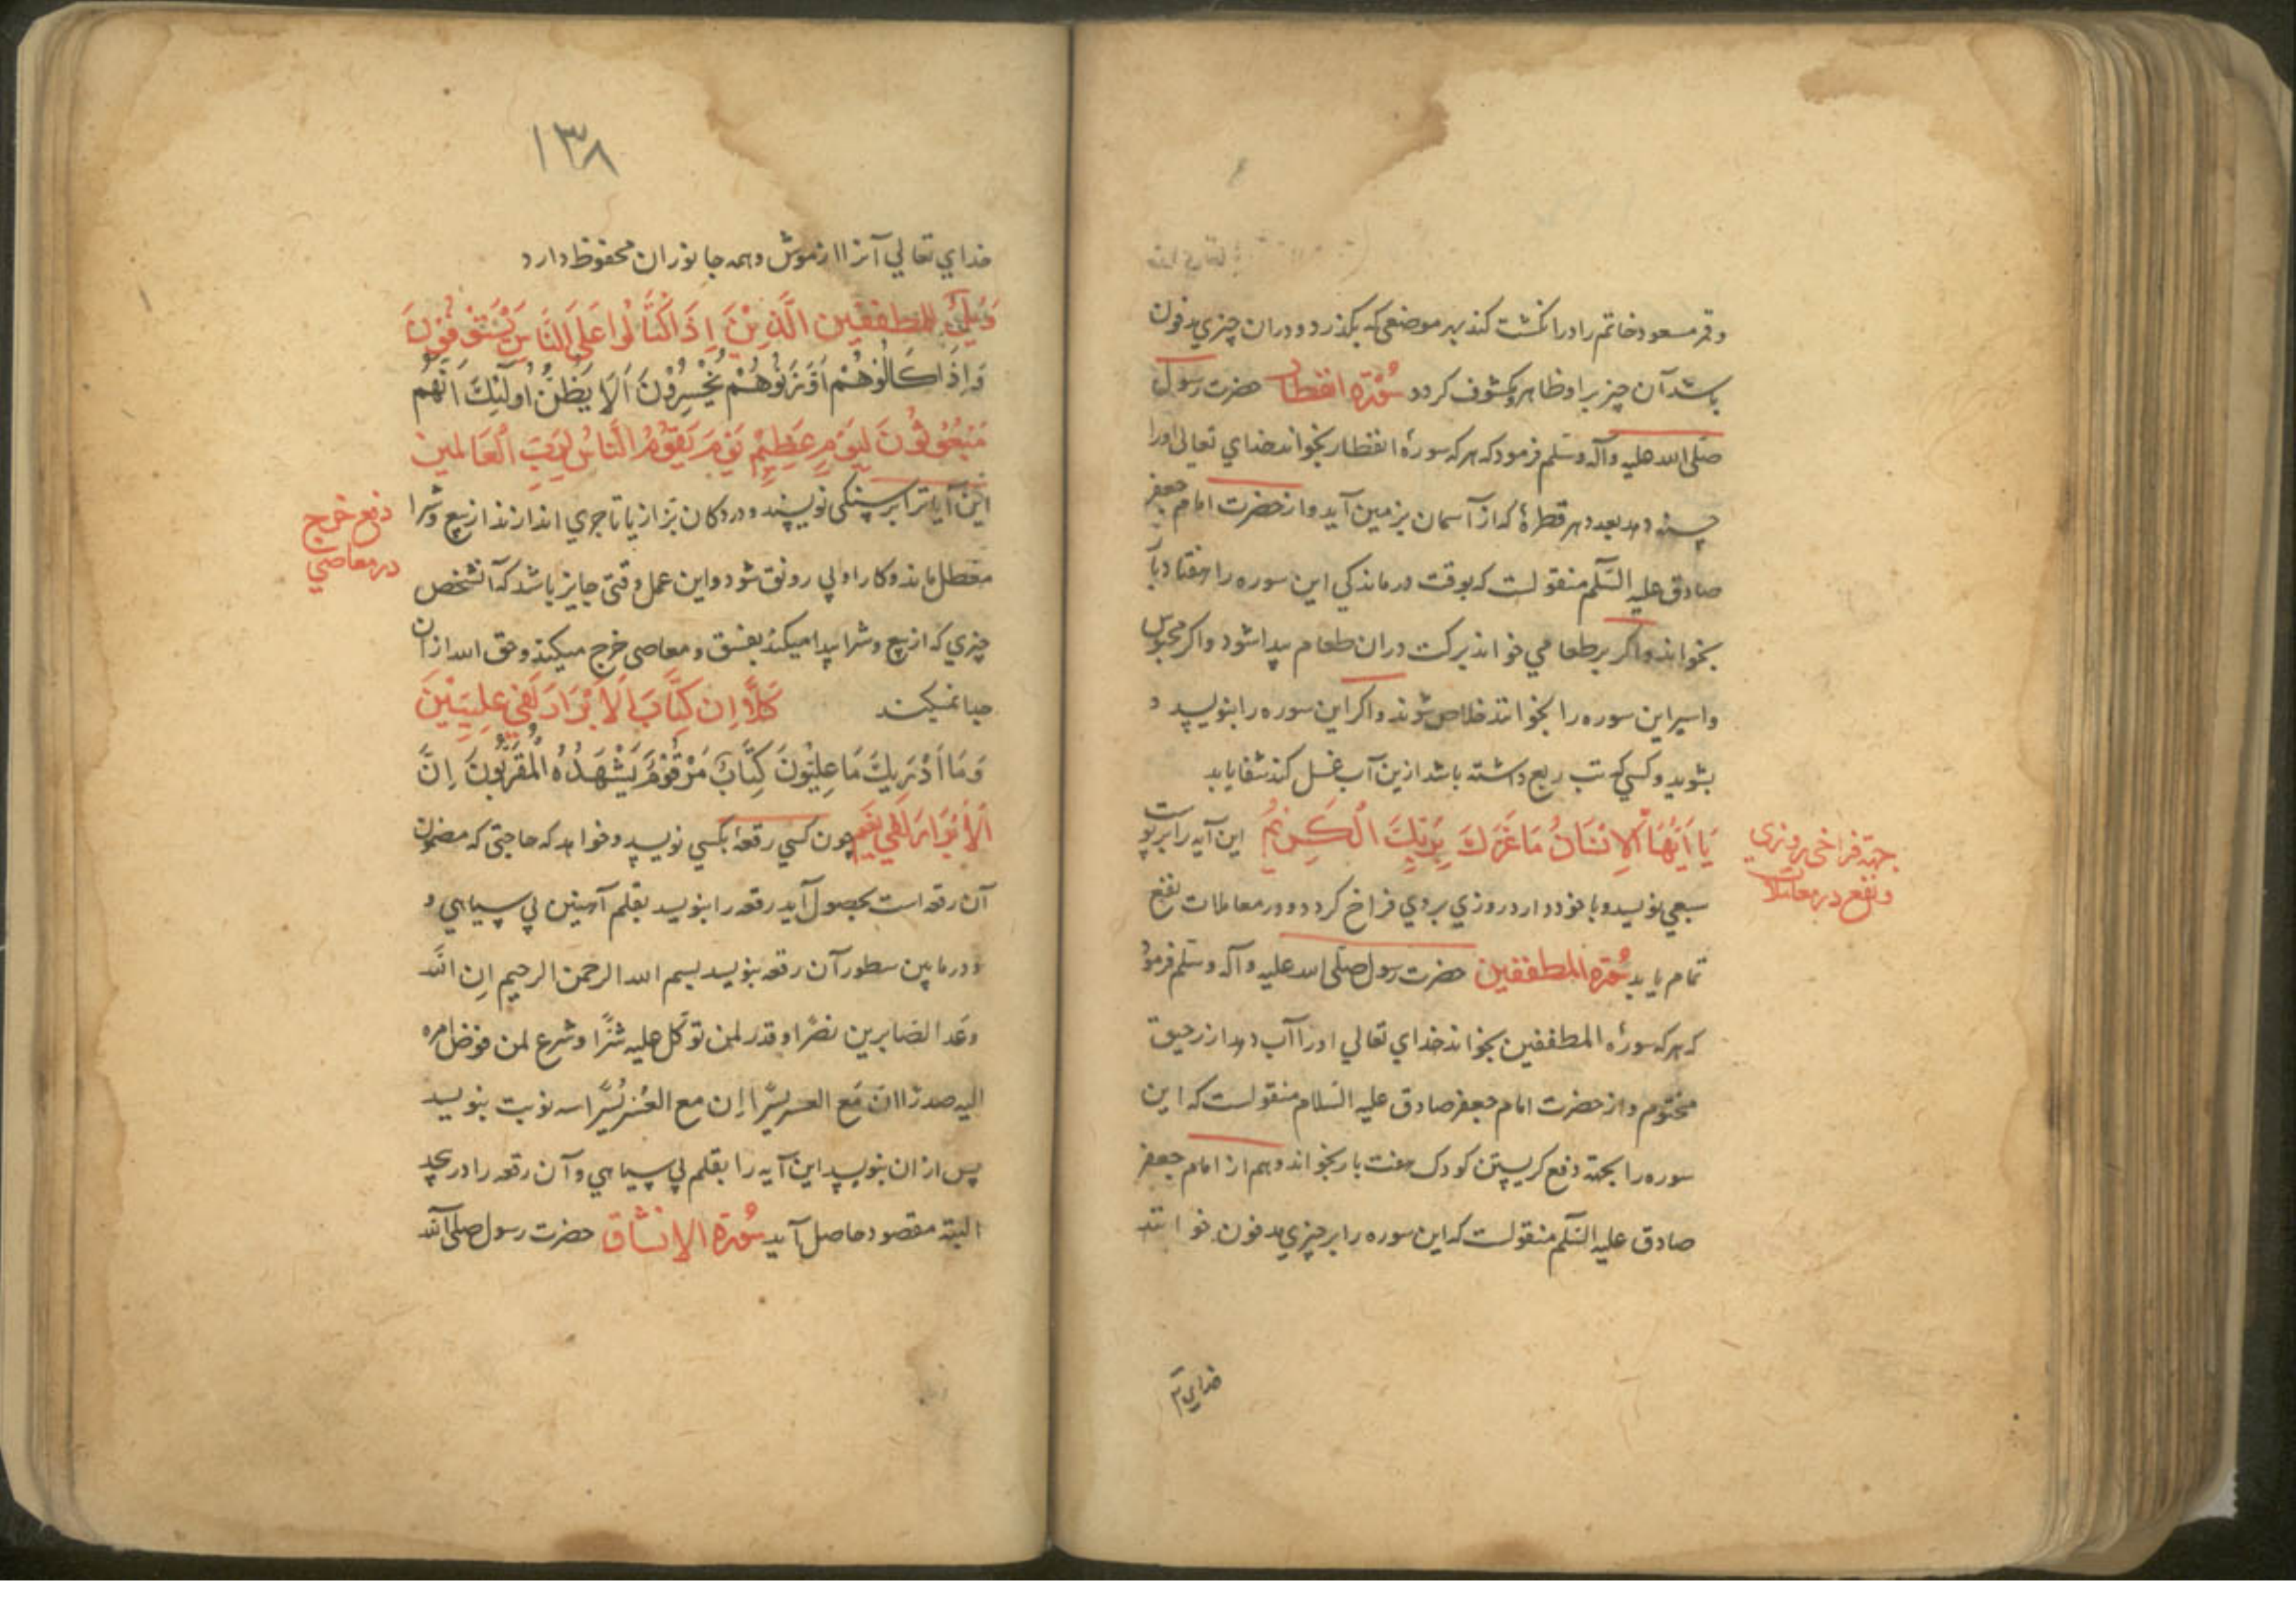 وقمر مسعود خاتم را در انکشت کند بهر موضعی که بکذرد و دران چیزي مدفون
باشد آن چیز بر او ظاهر و مکشوف کردد سُوْرَة انفطار حضرت رسول
صلی الله علیه وآله وسلم فرمود که هر که سورهٔ انفطار بخواند خداي تعالی اورا
حسنه دهد بعدد هر قطرهٔ که از آسمان بزمین آید و از حضرت امام جعفر
صادق علیه السّلم منقولست که بوقت درماندکي این سوره را هفتاد بآ
بخواند و اکر بر طعامي خوانند برکت دران طعام پیدا شود و اکر محبوس
و اسیر این سوره را بخوانند خلاص شوند و اکر این سوره را بنویسد و
بشوید و کسي که تب ربع داشته باشد ازین آب غسل کند شفا یابد
یَا اَیُّهَا الْاِنْسَانُ مَا غَرَّكَ بِرَبِّكَ الْکَرِیْمُ این آیه را بر پوست
جهة فراخی روزي
و نفع در معاملات
سبعي نویسد و با خود دارد روزي بروي فراخ کردد و در معاملات نفع
تمام یابد سُوْرَة المطففین حضرت رسول صلی الله علیه وآله وسلم فرمود
که هر که سورهٔ المطففین بخواند خداي تعالي اورا آب دهد از رحیق
مختوم و از حضرت امام جعفر صادق علیه السّلام منقولست که این
سوره را بجهة دفع کریستن کودک هفت بار بخواند و هم از امام جعفر
صادق علیه السّلم منقولست که این سوره را بر چیزي مدفون خوانند
خداي ت
۱۳۸
خداي تعالي آنرا از موش و همه جانوران محفوظ دارد
وَیْلٌ لِلمطففین الَّذِیْنَ اِذَا اکْتَالُوا عَلَی النَّاسِ یَسْتَوْفُوْنَ
وَاِذَا کَالُوْهُمْ اَوْ وَزَنُوْهُمْ یُخْسِرُوْنَ اَلَا یَظُنُّ اُولٰئِكَ اَنَّهُمْ
مَبْعُوْثُوْنَ لِیَوْمٍ عَظِیْمٍ یَوْمَ یَقُوْمُ النَّاسُ لِرَبِّ الْعَالَمِیْنَ
این آیاترا بر سنکی نویسند و در دکان بزاز یا تاجري اندازند از بیع و شرا
دفع خرج
در معاصي
معطل ماند و کار او بي رونق شود و این عمل وقتی جایز باشد که آنشخص
چیزي که از بیع و شرا پیدا میکند بفسق و معاصی خرج میکند و حق الله از ان
جدا نمیکند کَلَّا اِن کِتَابَ الْاَبْرَارِ لَفِي عِلِّیِّیْنَ
وَمَا اَدْرٰیكَ مَا عِلِیُّوْنَ کِتَابٌ مَرْقُوْمٌ یَشْهَدُهُ الْمُقَرَّبُوْنَ اِنَّ
الْاَبْرَارَ لَفِي نَعِیم چون کسي رقعهٔ بکسي نویسد و خواهد که حاجتی که مضمون
آن رقعه است بحصول آید رقعه را بنویسد بقلم آهنین بي سیاهي و
و در مابین سطور آن رقعه بنویسد بسم الله الرحمن الرحیم اِن اللّه
وعَد الصّابرین نصرًا و قدر لمن توکّل علیه شرًا و شرع لمن فوض امره
الیه صدرًا ان مَع العسر یسرًا اِن مع العُسرِ یُسرًا سه نوبت بنویسد
پس از ان بنویسد این آیه را بقلم بي سیاهي و آن رقعه را در پیچد
البته مقصود حاصل آید سُوْرَة الانشاق حضرت رسول صلی اللّه